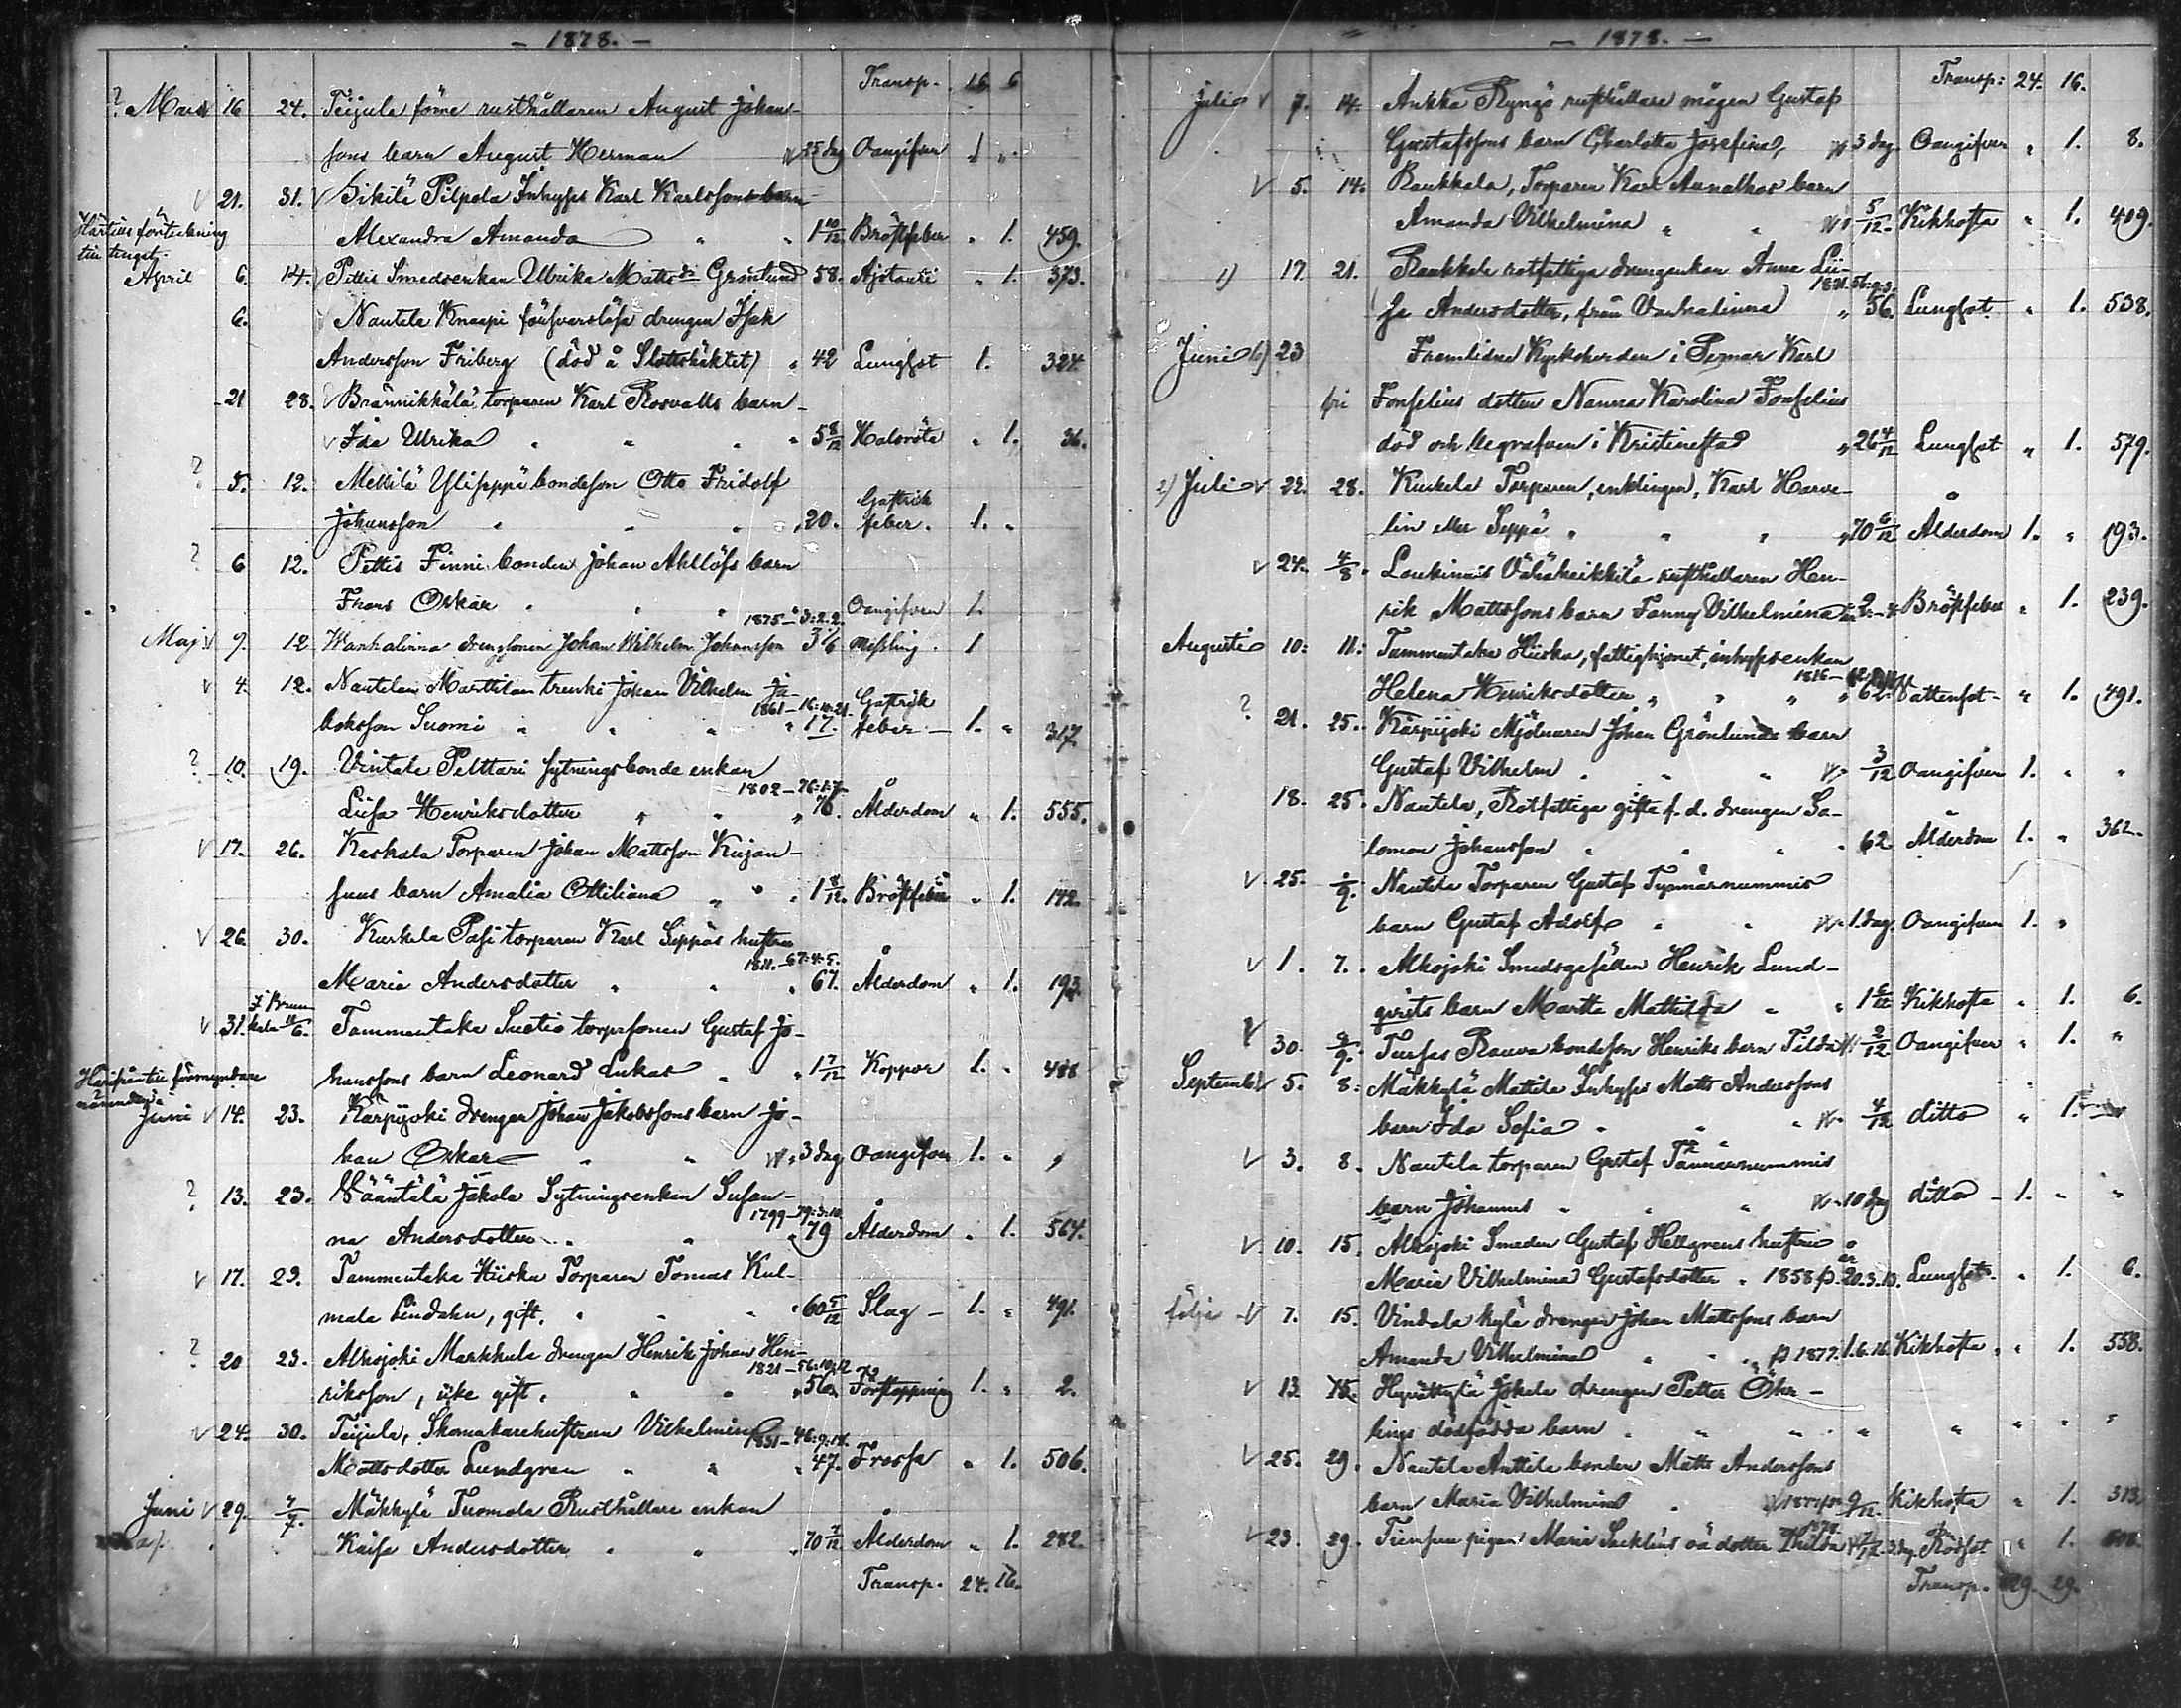 - 1878. -
Transp. 16 6
? Mars 16 24. Teijula förre rusthållaren August Johans-
sons barn August Herman 25 dag Oangifven 1 "
V 21. 31. V Sikilä Pilpola Inhyses Karl Karlssons barn
Alexandra Amanda " " 1 10/12 Bröstfeber " 1. 459.
Martius förteckning
till tinget.
April 6. 14. Pettis Smedsenkan Ulrika Mattsdr Grönlund 58. " 1. 373.
6. Nautela Knaapi försvarslöse drengen Isak
Andersson Friberg (död å Slottshäktet) " 42 Lungsot 1. 324.
21 28. V Brännikkälä torparen Karl Rosvalls barn
V Ida Ulrika " " " 5 8/12 Halsröta " 1. 36.
? 5. 12. Mellilä Yliseppä bondeson Otto Fridolf
Johansson " " " 20. Gastrik feber. 1. "
? 6 12. Pettis Finni bonden Johan Ahllöfs barn
Frans Oskar " " 1875 - 3:2.2. Oangifven 1.
Maj V 9. 12 Wanhalinna drengsonen Johan Wilhelm Johansson 3 Messling. 1
V 4. 12. Nautelan Marttilan trenki Johan Vilhelm Ja-
1861 - 16:11:21.
koksson Suomi " " " " 17. Gastrik feber - 1. " 317
? 10. 19. Vintala Pelttari sytningsbonde enkan
1802 - 76:1:7.
Liisa Henriksdotter " " " 76. Ålderdom " 1. 555.
V 17. 26. Kaskala Torparen Johan Mattsson Kujan-
suus barn Amalia Ottiliana " " " 1 8/12. Bröstfeber " 1. 142.
V 26. 30. Kurkela Pasi torparen Karl Seppäs hustru
1811. - 67:4:5.
Maria Andersdotter " " " 67. Ålderdom " 1. 193.
V 31. /6. Tammentaka Suotio torparsonen Gustaf Jo-
hanssons barn Leonard Lukas " " 1 7/12 Koppor 1. " 488
Härifrån till förmyndare
nämnden.
Juni V 14. 23. Karpijoki drengen Johan Jakobssons barn Jo-
han Oskar " " 3 dag Oangifven 1. " "
? 13. 23. Vääntelä Jakola Sytningsenkan Susan-
1799 - 79:3:10.
na Andersdotter " " 79 Ålderdom " 1. 564.
V 17. 23. Tammentaka Hiiska Torparen Tomas Kul-
mala Lindahn, gift. " " " 60 5/12 Slag - 1. " 491.
? 20 23. Alhojoki Markkula drengen Henrik Johan Hen-
1821 - 56:10:12
riksson, icke gift. " " " 56. Förstoppning 1. " 2.
V 24. 30. Teijula, Skomakarehustrun Vilhelmina
1831 - 46:9:14.
Mattsdotter Lundgren " " " 47. Frossa " 1. 506.
Juni V 29. 7/7. Mäkkylä Tuomola Rusthållare enkan
Kaisa Andersdotter " " " 70 7/12 Ålderdom " 1. 282.
Transp. 24. 16.
- 1878. -
Transp: 24. 16.
Juli V 7. 14. Ankka Ryngö rusthållare mågen Gustaf
Gustafssons barn Charlotta Josefina, 3 dag. Oangifven " 1. 8.
V 5. 14. Raukkala, Torparen Karl Aunalhos barn
Amanda Vilhelmina " " 5/12. Kikhosta " 1. 409.
1) 17. 21. Raukkala rotfattiga drengenkan Anna Lii-
1821. 56:9:9.
sa Andersdotter, från Vanhalinna " 56. Lungsot " 1. 538.
Juni b) 23 Framlidne Kyrkoherden i Pemar Karl
Fonselius dotter Nanna Karolina Fonselius
död och begrafven i Kristinestad " 26 4/12 Lungsot " 1. 579.
2) Juli V 22. 28. Kurkela Torparen, enklingen, Karl Harve-
lin eller Seppä " " " " 70 6/12 Ålderdom 1. " 193.
V 24. 4/8. Loukinais Vähäheikkilä rusthållaren Hen-
rik Mattssons barn Fanny Vilhelmina Bröstfeber " 1. 239.
Augusti 10: 11: Tammentaka Hiiska, fattighjonet, inhysesenkan
1816 -
Helena Henriksdotter " " " " 62. Vattensot " 1. 491.
? 21. 25. Kärpijoki Mjölnaren Johan Grönlunds barn
Gustaf Vilhelm " " " 3/12 Oangifven 1. " "
18. 25. Nautela, Rotfattiga gifta f. d. drengen Sa-
lomon Johansson " " " " 62. Ålderdom 1. " 362.
V 25. /9. Nautela Torparen Gustaf Tynnärnummis
barn Gustaf Adolf " " 1. dag. Oangifven 1. "
V 1. 7. Alhojoki Smedsgesällen Henrik Lund-
qvists barn Martta Mathilda " " Kikhosta " 1. 6.
V 30. /9. Turfas Rauva bondeson Henriks barn Tilda 2/12 Oangifven " 1. "
September V 5. 8: Mäkkylä Mattila Inhyses Matts Anderssons
barn Ida Sofia " " " 4/12 ditto " 1. "
V 3. 8. Nautela torparen Gustaf Tännärnummis
barn Johannes " " " 10 dag ditto - 1. " "
V 10. 15. Alhojoki Smeden Gustaf Hellgrens hustru
Maria Vilhelmina Gustafsdotter " 1858 20.3.13. Lungsot " 1. 6.
följa V 7. 15. Vindala kylä drengen Johan Mattssons barn
Amanda Vilhelmina " " " 1877. 1.6.16. Kikhosta " " 1. 558.
V 13. 15. Hypöttylä Jokela drengen Petter Öhr-
lings dödfödda barn " " " " " " " "
V 25. 29. Nautela Anttila bonden Matts Anderssons
barn Maria Vilhelmina " 9/12. Kikhosta " 1. 313.
V 23. 29. Tiensuu pigan Maria Sacklins oä dotter Thilda Rödsot " 1.
Transp. 29. 29.